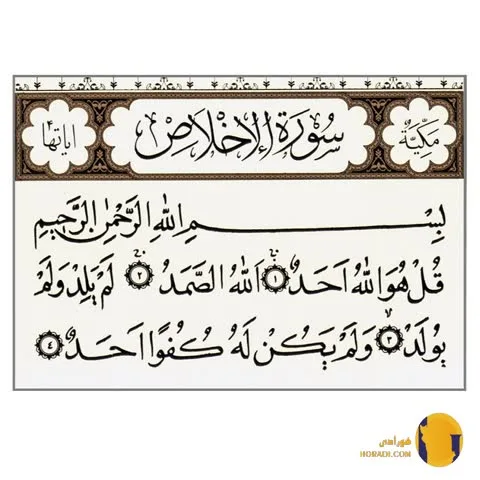 مكية سورة الإخلاص اياتها ٤
بِسْمِ اللهِ الرَّحْمٰنِ الرَّحِيمِ
قُلْ هُوَ اللهُ اَحَدٌ ١ اَللهُ الصَّمَدُ ٢ لَمْ يَلِدْ وَلَمْ
يُولَدْ ٣ وَلَمْ يَكُنْ لَهُ كُفُوًا اَحَدٌ ٤
HORADI.COM